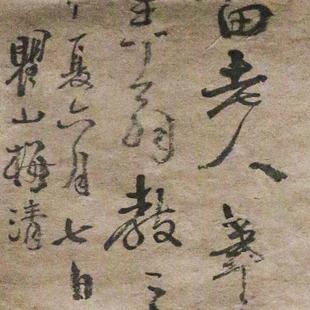 田老人筆
丁翁教之
夏六月七日
瞿山梅清